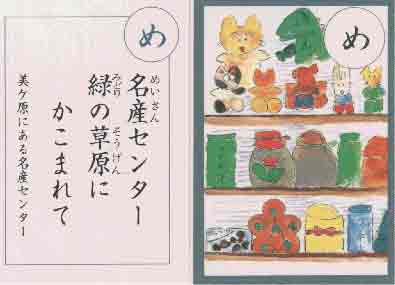 め
名産センター
めいさん
緑の草原に
みどり そうげん
かこまれて
美ケ原にある名産センター
め